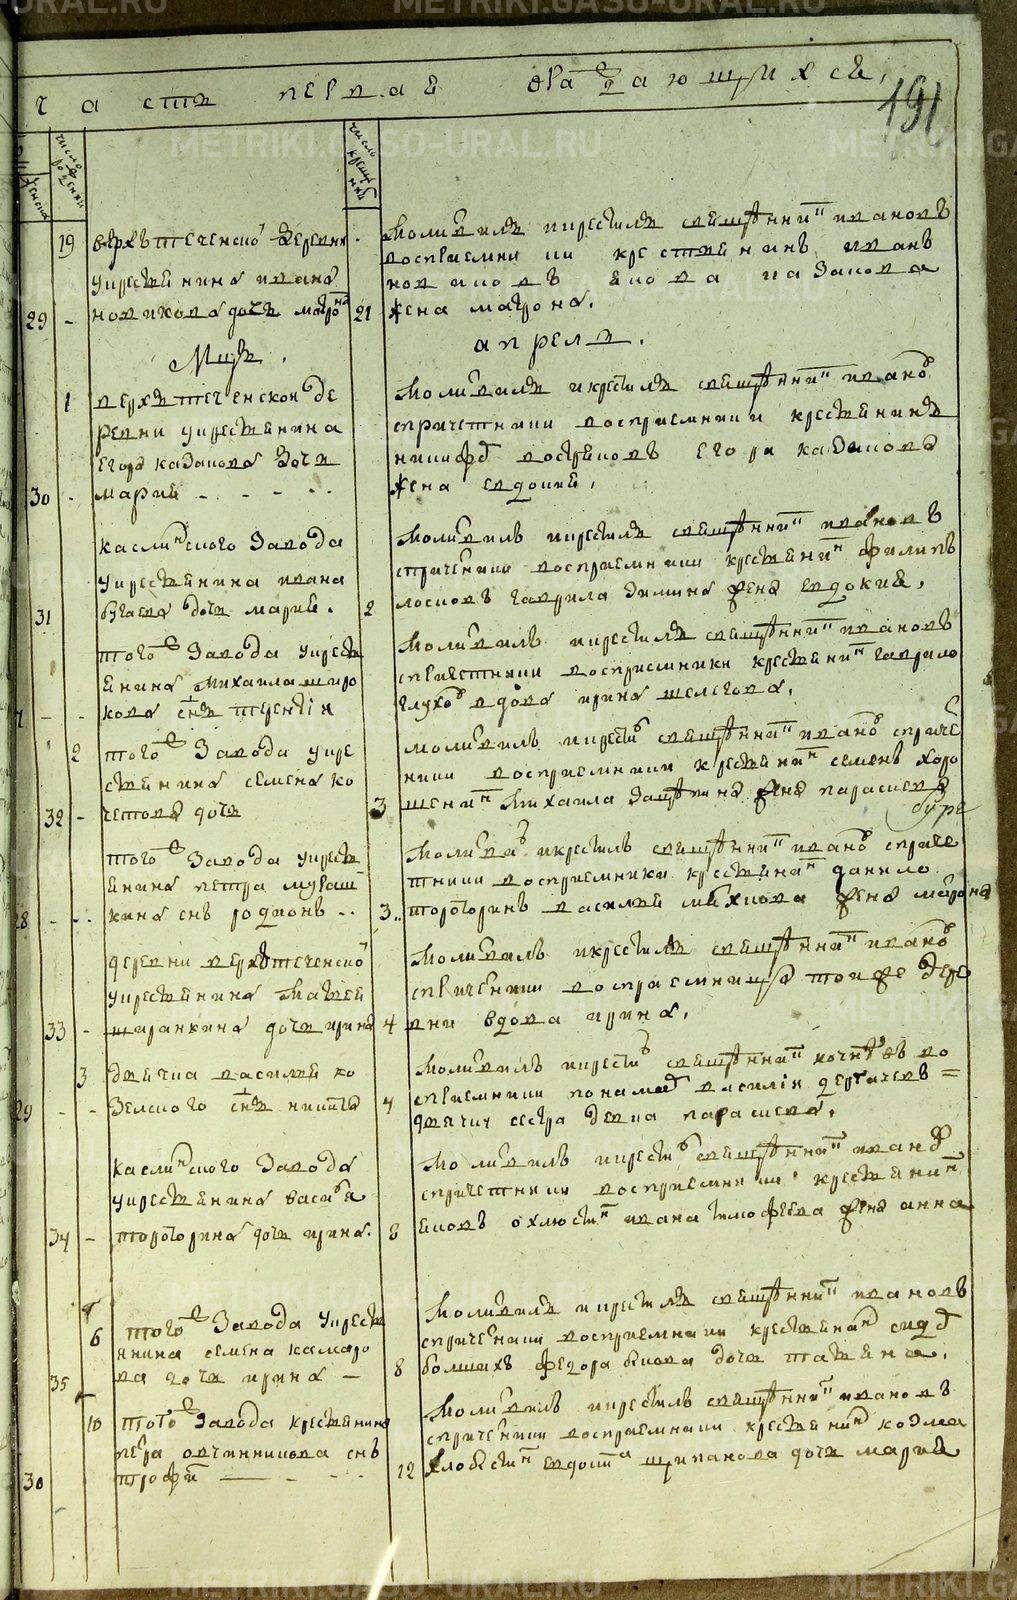 часть первая ѡраждающихся,
191
женска
число рожденій
число крещеній
19 верхътеченской деревни
у крестьянина ивана
29 - новикова дочь матрона 21
молилъ и крестилъ священникъ ивановъ
восприемники крестьянинъ иванъ
новиковъ казакова
жена матрона.
Мцъ. апреля.
1 верхътеченской де
ревни у крестьянина
егора казакова дочь
30 - мария - - - -
молилъ и крестилъ священникъ ивановъ
с причетники восприемники крестьянинъ
никифоръ востряковъ егора казакова
жена евдокия,
каслинского завода
у крестьянина ивана
31 дочь мария. 2
молилъ и крестилъ священникъ ивановъ
с причетники восприемники крестьянинъ филипъ
лосковъ гаврила зимина жена евдокия,
того завода у кресть
янина михаила широ
кова сынъ терентiй
молилъ и крестилъ священникъ ивановъ
с причетники восприемники крестьянинъ гаврило
глуховъ вдова ирина шелегова,
2 того завода у кре
стьянина семена ко
32 - четова дочь 3
молилъ и крестилъ священникъ ивановъ с приче
тники восприемники крестьянинъ семенъ хоро
шенинъ михаила жена парасковья
того завода у кресть
янина петра мураш
28 - - кина сынъ родионъ - - 3
молилъ и крестилъ священникъ ивановъ с приче
тники восприемники крестьянинъ данило
тороторинъ василья жена матрона
деревни верхтеченской
у крестьянина матвея
33 - ширинкина дочь ирина 4
молилъ и крестилъ священникъ ивановъ
с причетники восприемница той же дере
вни вдова ирина.
3 дьячка василья ко
29 - - зелского сынъ никита 4
молилъ и крестилъ священникъ во
сприемники понамарь василiй дергачевъ =
дьячич сестра девка парасковья.
каслинского завода
у крестьянина василья
34 - тороторина дочь ирина. 8
молилъ и крестилъ священникъ ивановъ
с причетники восприемники крестьянинъ
яковъ охлюстинъ ивана тимофеева жена анна
6 того завода у кресть
янина семена камаро
35 ва дочь ирина - 8
молилъ и крестилъ священникъ ивановъ
с причетники восприемники крестьянинъ
болшихъ федора быкова дочь татьяна.
10 того завода крестьянина
петра овчинникова сынъ
30 трофимъ - - - - 12
молилъ и крестилъ священникъ ивановъ
с причетники восприемники крестьянинъ козма
хлобыстинъ щипанова дочь мария
METRIKI.GASO-URAL.RU